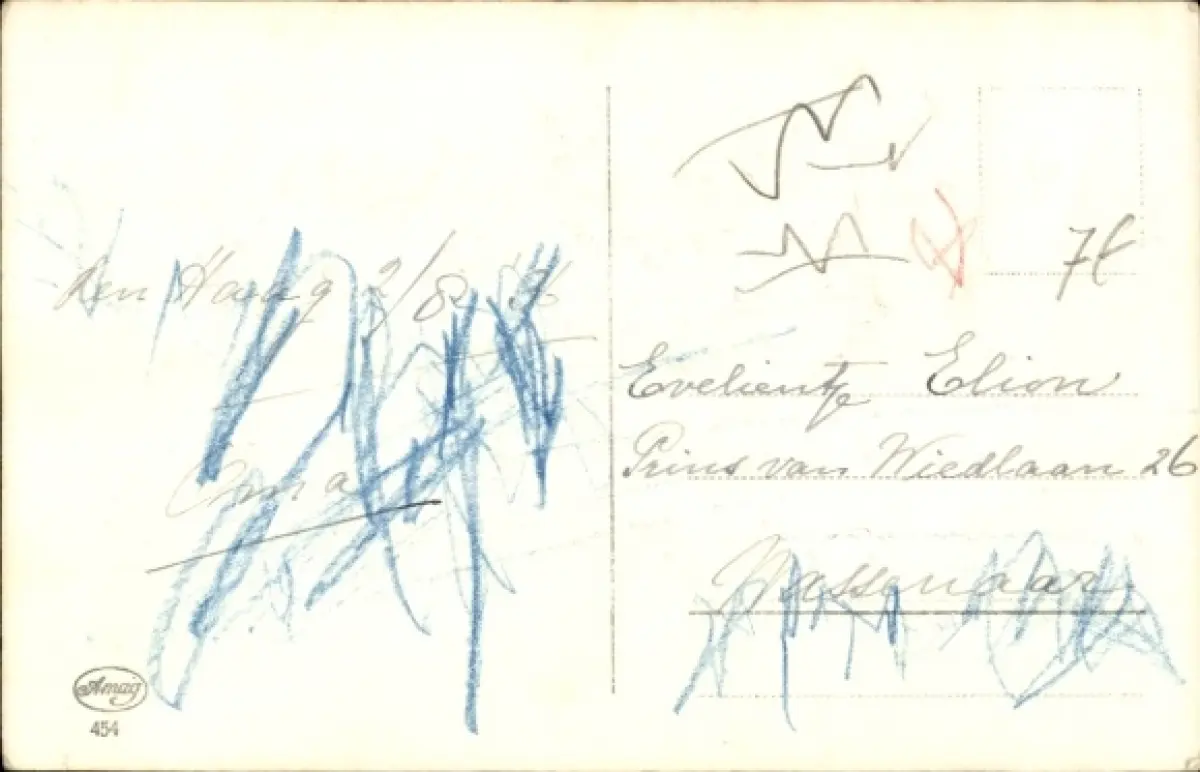 Den Haag 2/8 '26
Oma
Evelientje Elion
Prins van Wiedlaan 26
Wassenaar
Amag
454